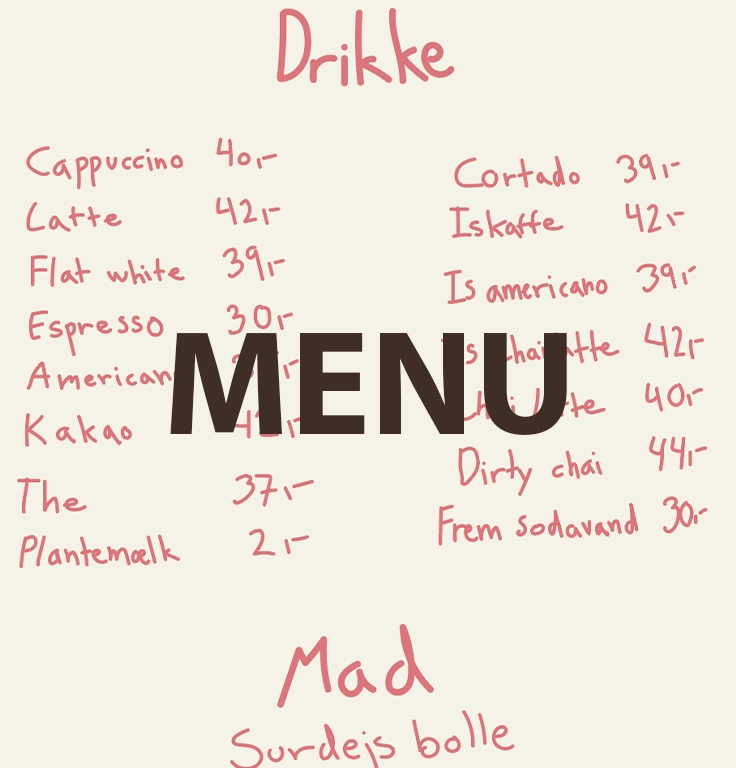 Drikke
Cappuccino 40,-
Latte 42,-
Flat white 39,-
Espresso 30,-
American
Kakao 42,-
The 37,-
Plantemælk 2,-
Cortado 39,-
Iskaffe 42,-
Is americano 39,-
Is chai latte 42,-
Chai latte 40,-
Dirty chai 44,-
Frem sodavand 30,-
MENU
Mad
Surdejs bolle